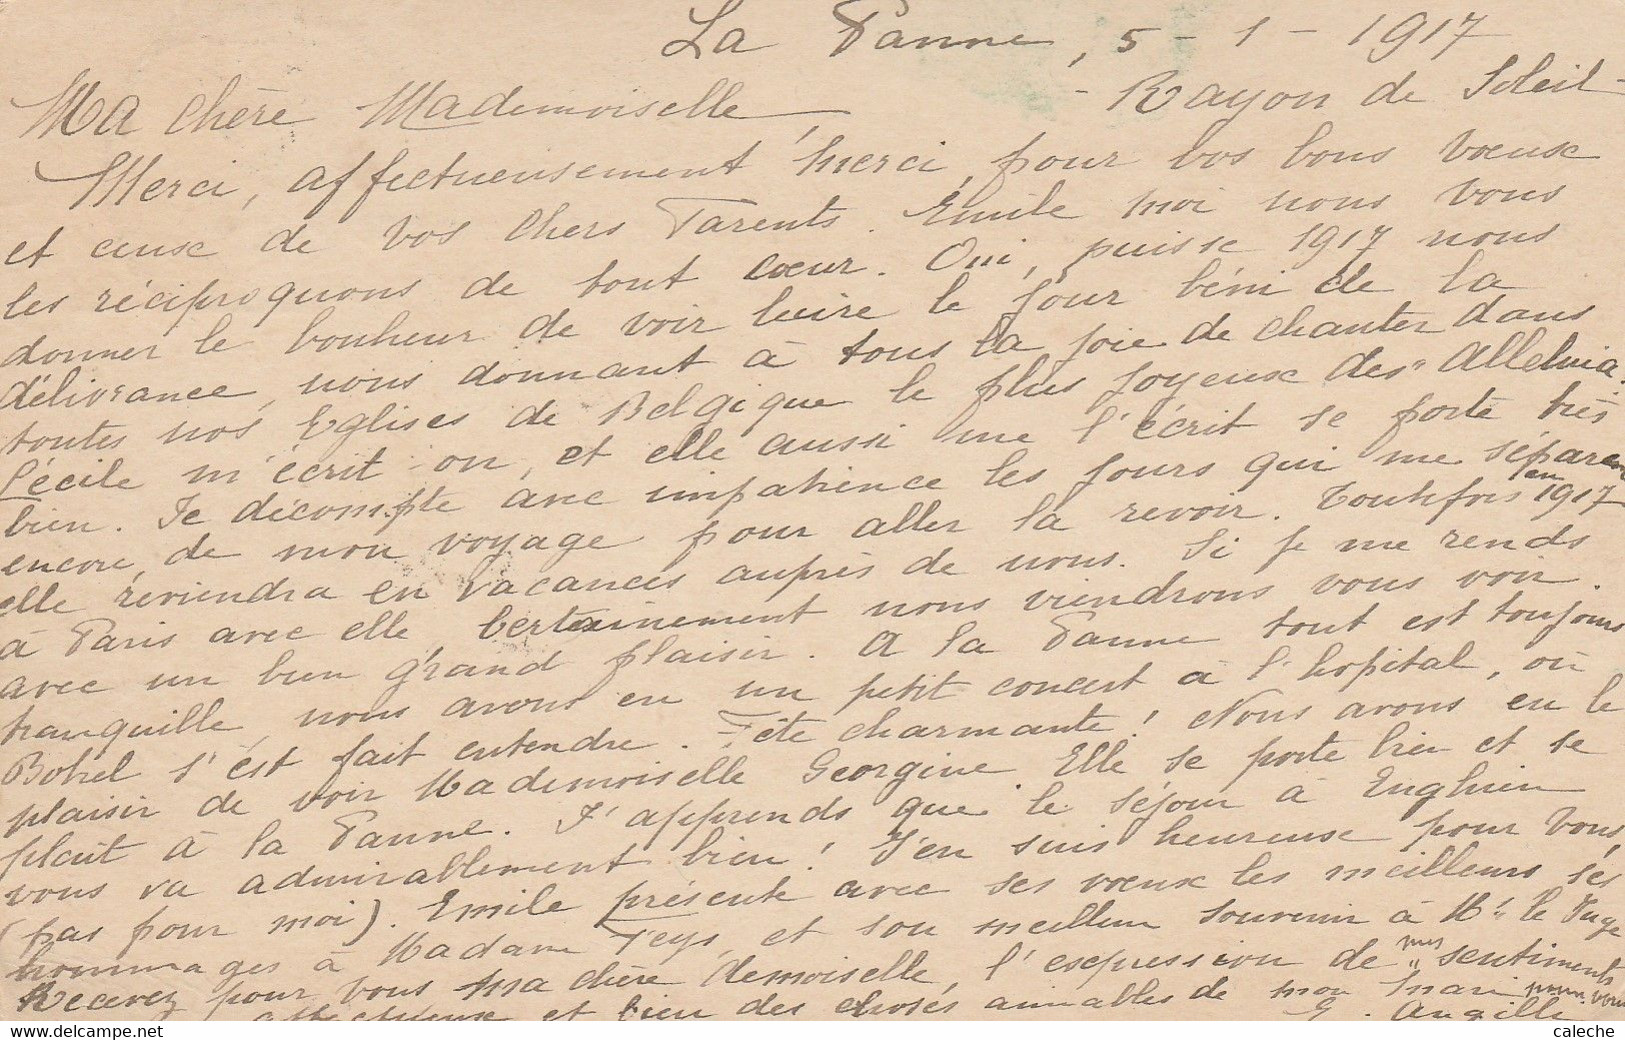 La Panne, 5 - 1 - 1917
Ma chère Mademoiselle, - Rayon de Soleil -
Merci, affectueusement merci, pour vos bons vœux
et ceux de vos chers Parents. Emile moi nous vous
les réciproquons de tout cœur. Oui, puisse 1917 nous
donner le bonheur de voir luire le jour béni de la
délivrance, nous donnant à tous la joie de chanter dans
toutes nos Eglises de Belgique le plus joyeux des "Alleluia.
Cécile m'écrit on, et elle aussi me l'écrit se porte très
bien. Je décompte avec impatience les jours qui me séparent
encore de mon voyage pour aller la revoir. Toutefois en 1917
elle reviendra en vacances auprès de nous. Si je me rends
à Paris avec elle, certainement nous viendrons vous voir.
avec un bien grand plaisir. A la Panne tout est toujours
tranquille, nous avons eu un petit concert à l'hopital, où
Botrel s'est fait entendre. Fête charmante! Nous avons eu le
plaisir de voir Mademoiselle Georgine. Elle se porte bien et se
plait à la Panne. J'apprends que le séjour à Enghien
vous va admirablement bien! J'en suis heureuse pour vous,
(pas pour moi). Emile présente avec ses vœux les meilleurs ses
hommages à Madame Feys, et son meilleur souvenir à Mr le Juge
Recevez pour vous ma chère demoiselle, l'expression de mes sentiments
affectueux et bien des choses aimables de mon mari pour vous
E. Augille